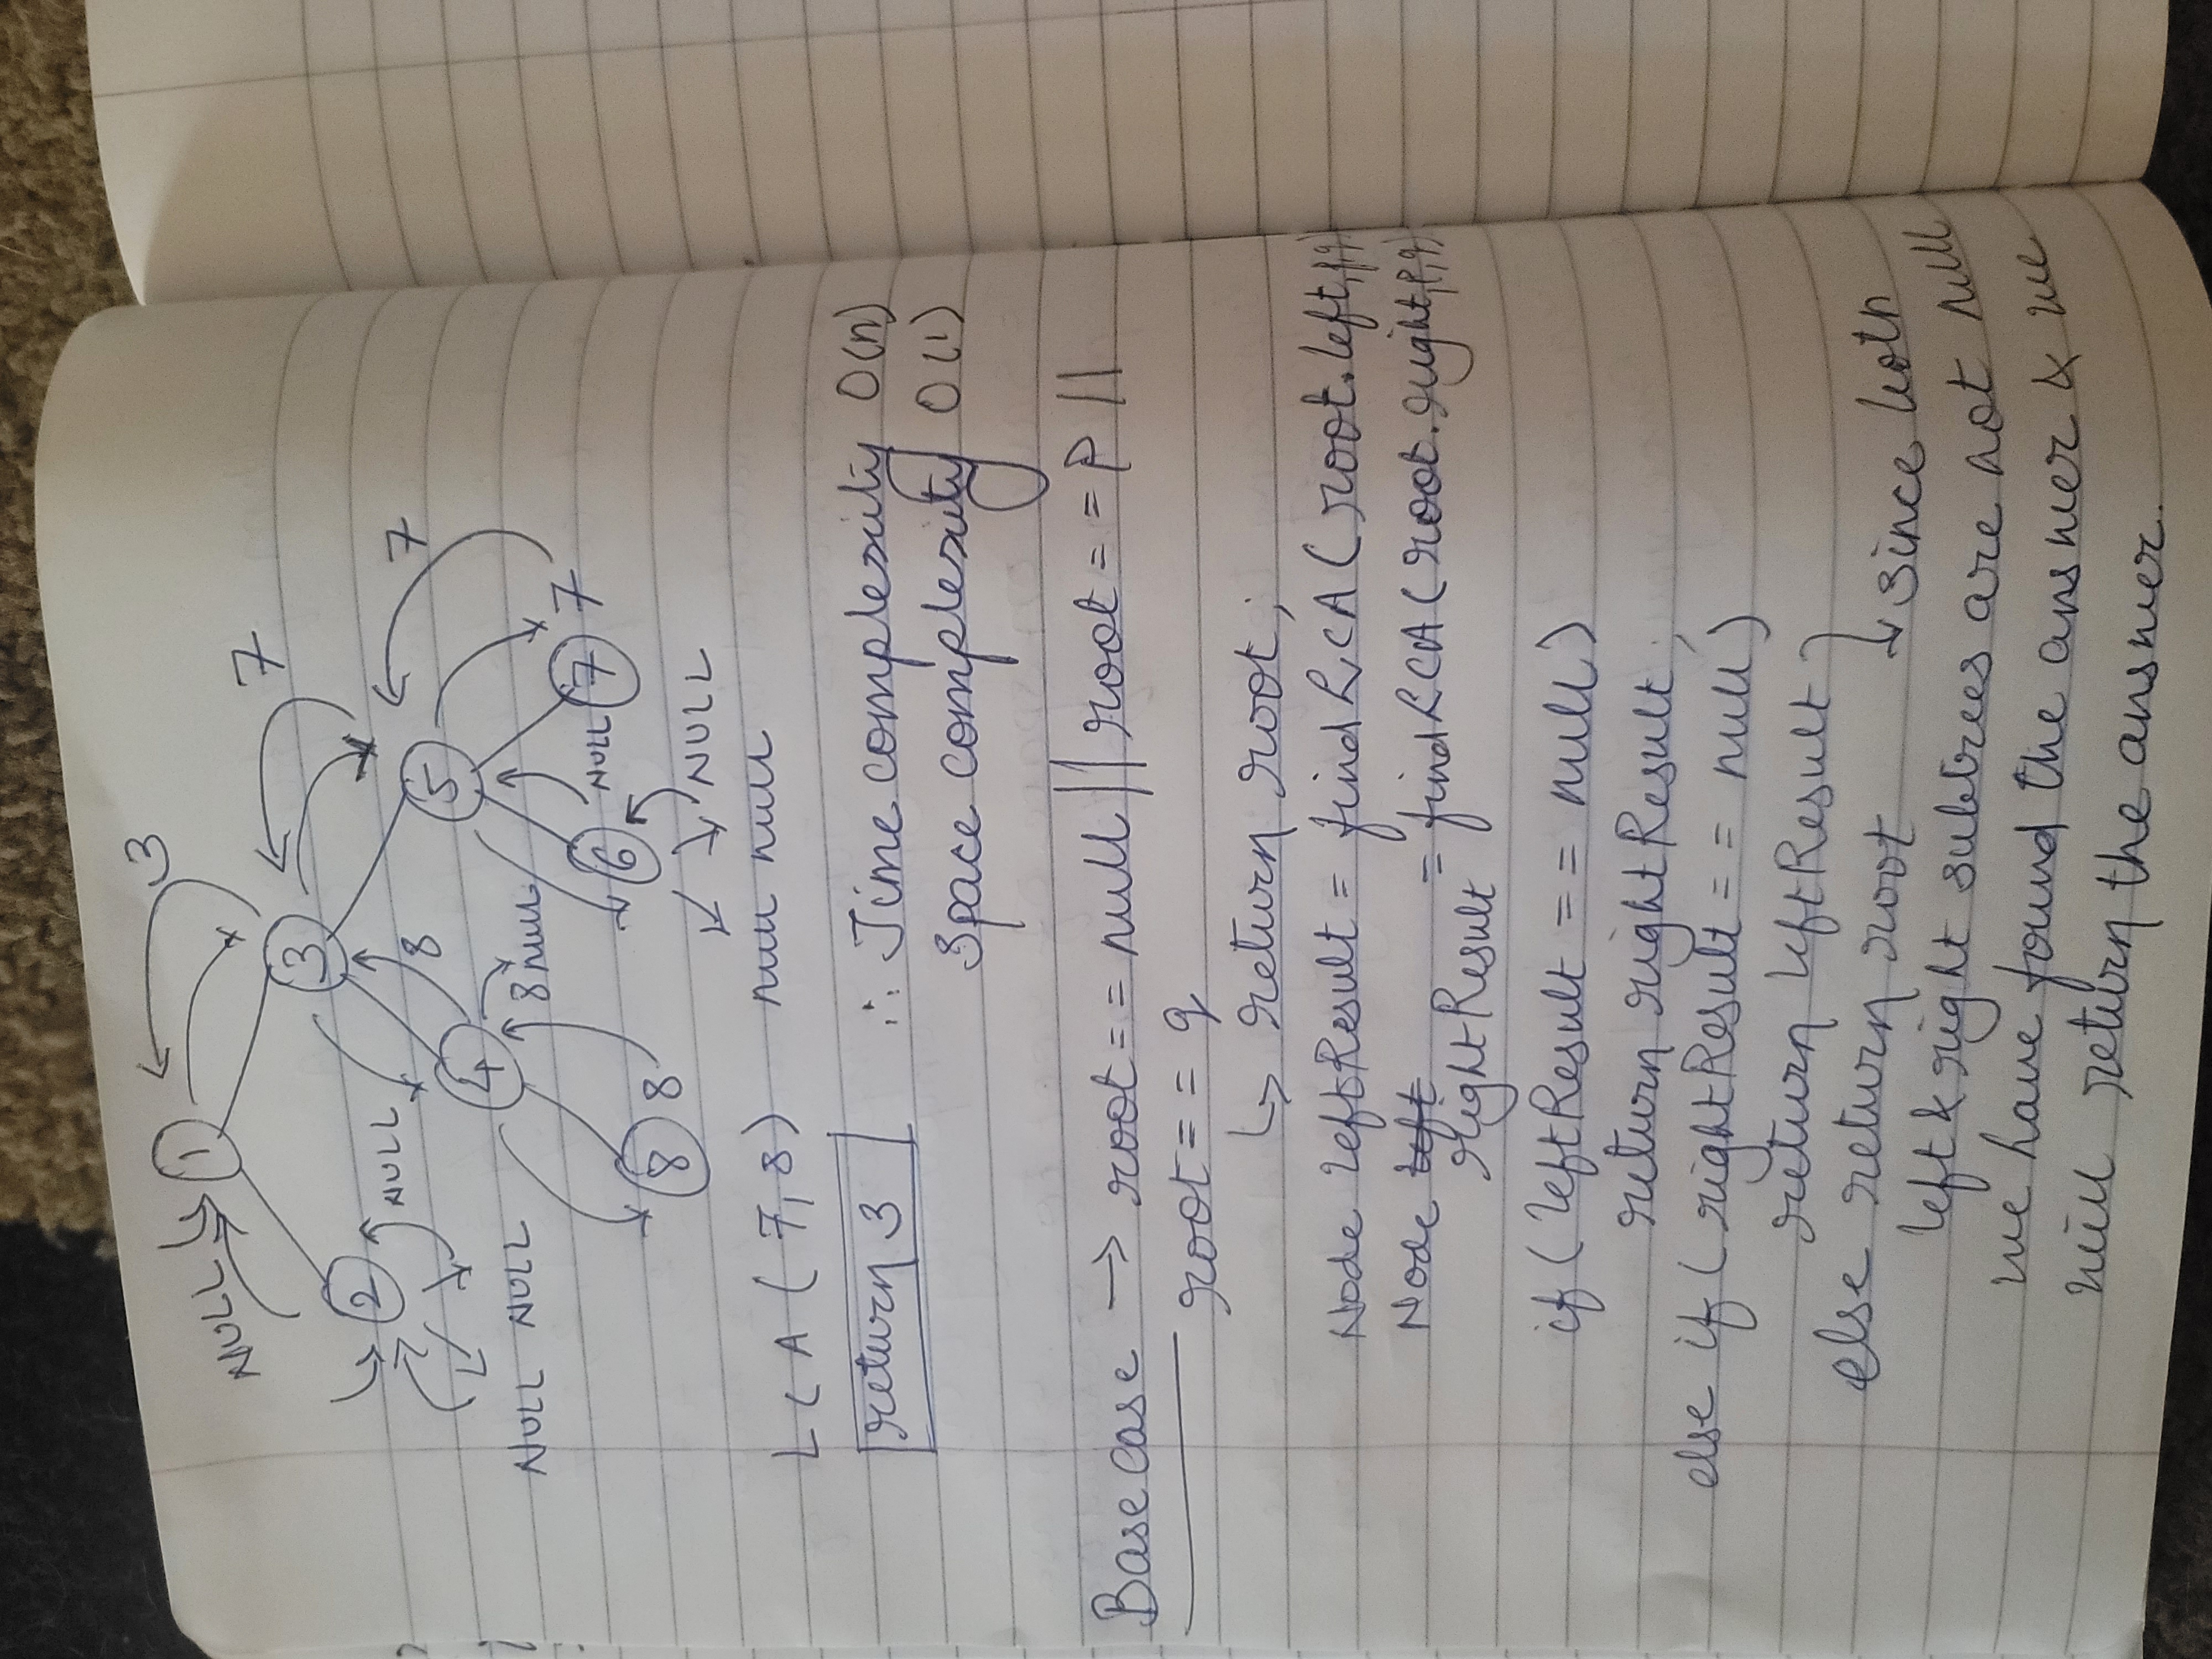 3
NULL 1
7
3
2 NULL
8 5 7
4
NULL NULL 8 null
6 NULL 7 7
8 8
NULL
LCA (7,8) null null
return 3 ∴ Time complexity O(n)
Space complexity O(1)
Base case → root == null || root == p ||
root == q
↳ return root;
Node leftResult = findLCA (root.left,p,q)
Node left = findLCA (root.right,p,q)
rightResult
if (leftResult == null)
return rightResult;
else if (rightResult == null)
return leftResult
else return root → since both
left & right subtrees are not null
we have found the answer & we
will return the answer.